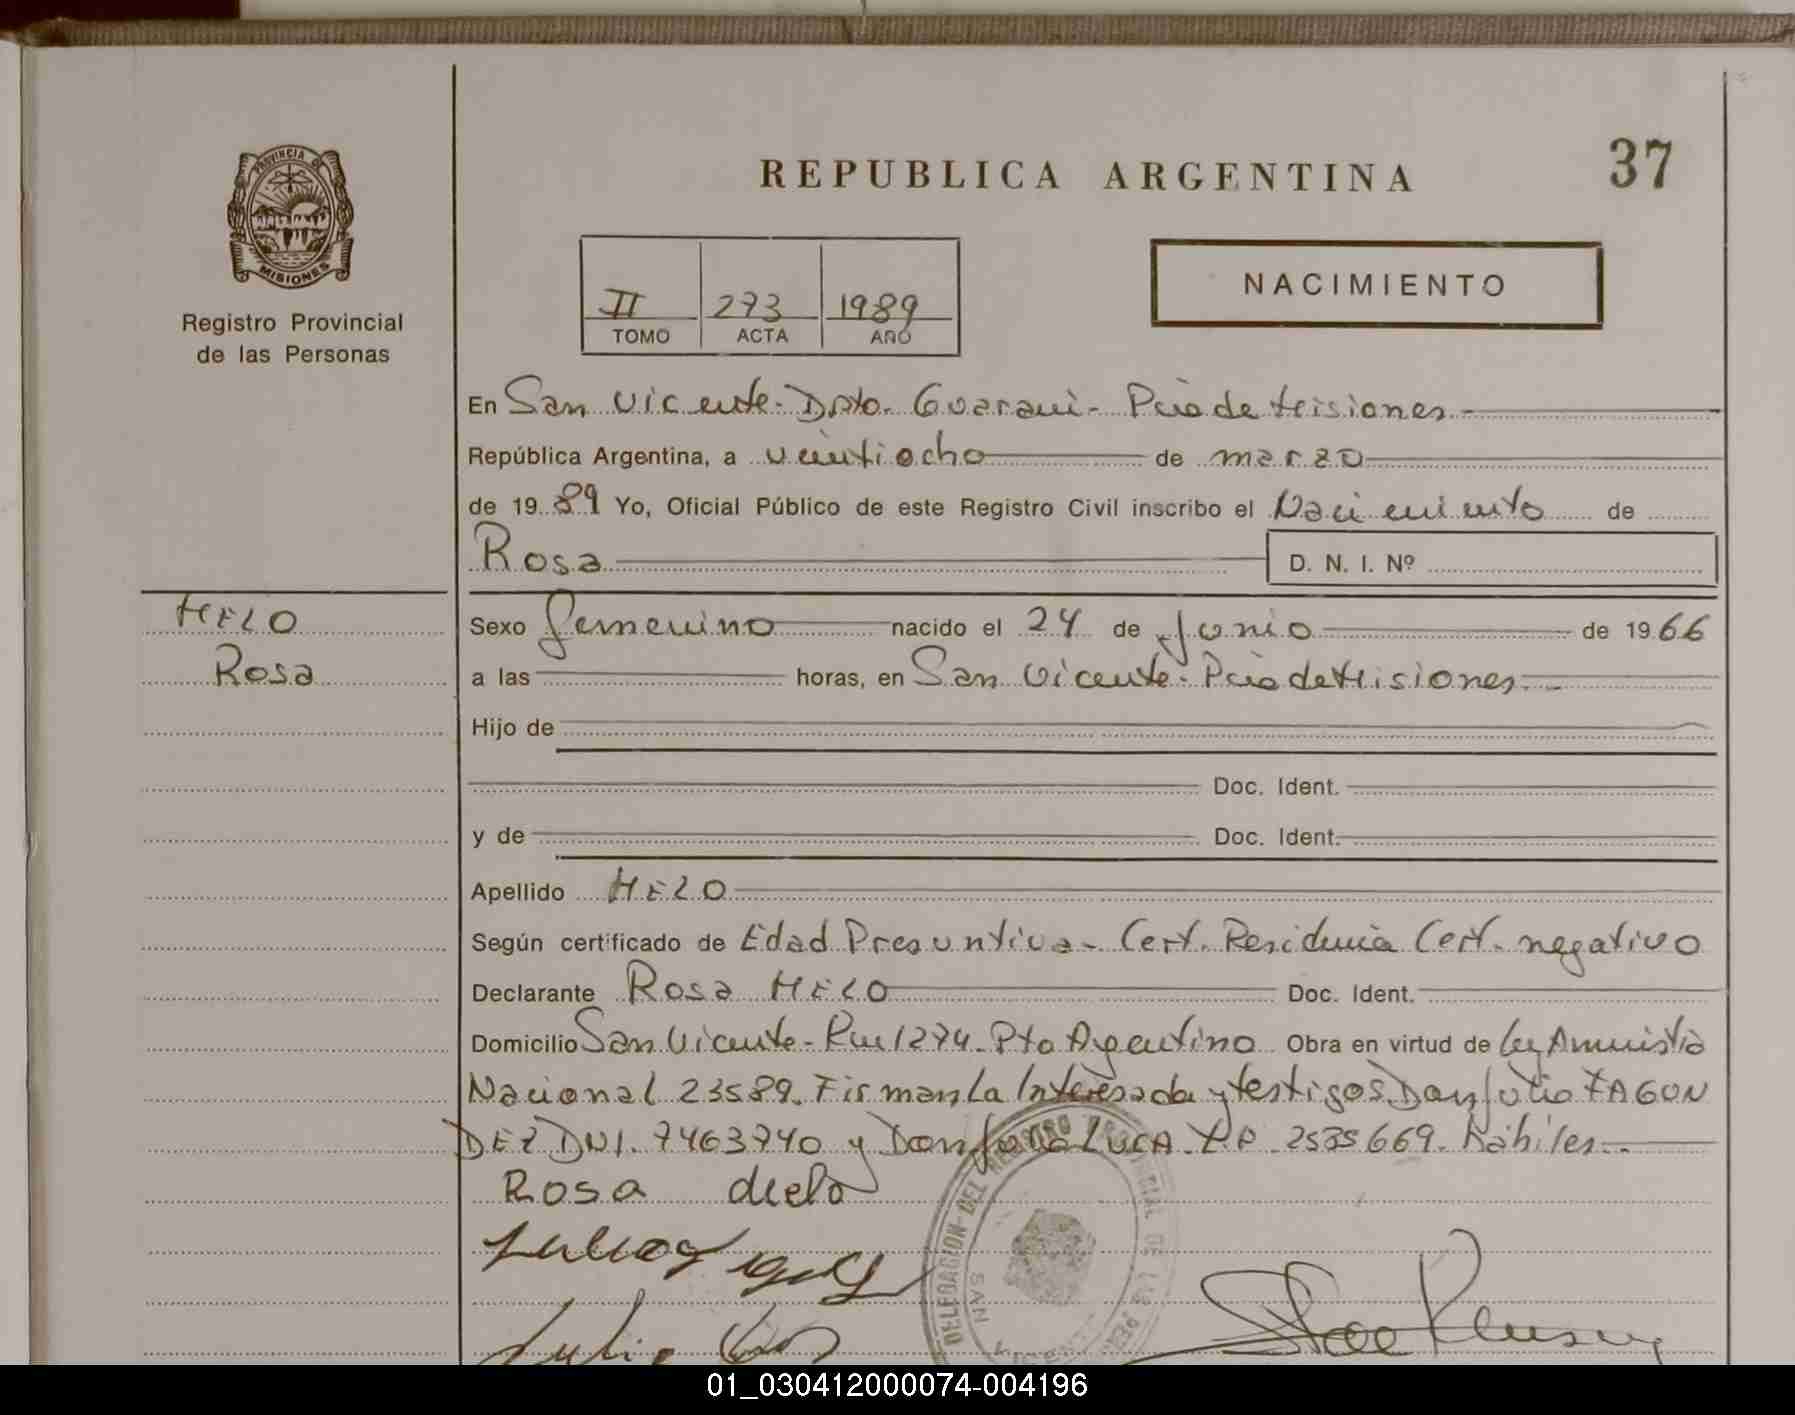 REPUBLICA ARGENTINA
37
PROVINCIA DE
MISIONES
Registro Provincial
de las Personas
II 273 1989
TOMO ACTA AÑO
NACIMIENTO
En San Vicente - Dpto. Guaraní - Pcia de Misiones -
República Argentina, a veintiocho de marzo
de 1989 Yo, Oficial Público de este Registro Civil inscribo el Nacimiento de
Rosa D. N. I. Nº
MELO
Rosa
Sexo femenino nacido el 24 de Junio de 1966
a las horas, en San Vicente - Pcia de Misiones -
Hijo de
Doc. Ident.
y de Doc. Ident.
Apellido MELO
Según certificado de Edad Presuntiva - Cert. Residencia Cert. negativo
Declarante Rosa MELO Doc. Ident.
Domicilio San Vicente - Km 1274 - Pto Argentino Obra en virtud de Ley Amnistia
Nacional 23589. Firman La Interesada y testigos Don Julio FAGUN
DEZ DNI. 7463740 y Don LUCA 2535669. Hábiles -
Rosa Melo
DELEGACION DEL REGISTRO PROVINCIAL DE LAS PER
SAN VICENTE
Julio
01_030412000074-004196